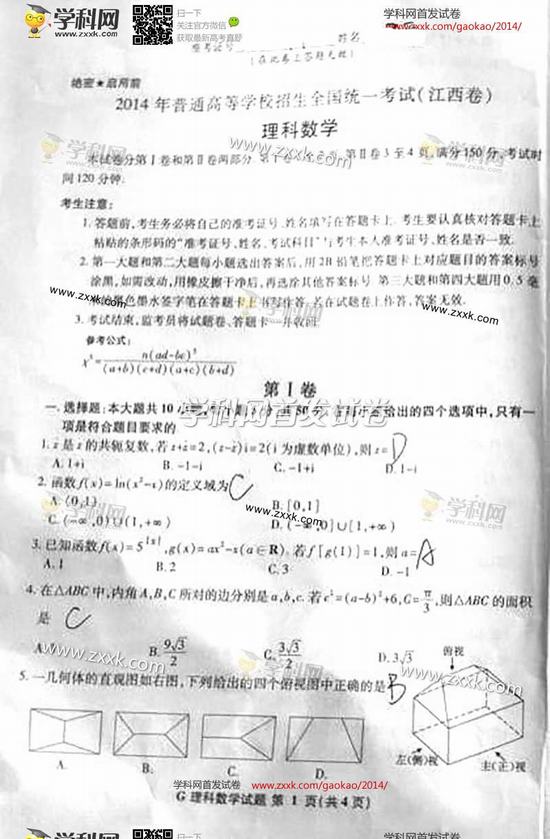 学科网
www.zxxk.com
扫一扫
关注官方微信
获取最新高考真题
学科网首发试卷
www.zxxk.com/gaokao/2014/
姓名
(在此卷上答题无效)
绝密★启用前
2014年普通高等学校招生全国统一考试(江西卷)
理科数学
学科网
www.zxxk.com
本试卷分第Ⅰ卷和第Ⅱ卷两部分. 第Ⅰ卷 第Ⅱ卷3至4页,满分150分,考试时
间120分钟.
考生注意:
1.答题前,考生务必将自己的准考证号、姓名填写在答题卡上.考生要认真核对答题卡上
粘贴的条形码的“准考证号、姓名、考试科目”与考生本人准考证号、姓名是否一致.
2.第一大题和第二大题每小题选出答案后,用2B铅笔把答题卡上对应题目的答案标号
涂黑,如需改动,用橡皮擦干净后,再选涂其他答案标号.第三大题和第四大题用0.5毫
米黑色墨水签字笔在答题卡上书写作答.若在试题卷上作答,答案无效.
www.zxxk.com
3.考试结束,监考员将试题卷、答题卡一并收回.
参考公式:
x²=n(ad-bc)²/(a+b)(c+d)(a+c)(b+d)
第Ⅰ卷
学科网首发试卷
一、选择题:本大题共10小题, 共50分. 给出的四个选项中,只有一
项是符合题目要求的.
1. z̄是z的共轭复数,若z+z̄=2,(z-z̄)i=2(i为虚数单位),则z= D
A. 1+i B. -1-i C. -1+i D. 1-i
2. 函数f(x)=ln(x²-x)的定义域为 C
A. (0,1) B. [0,1]
C. (-∞,0)∪(1,+∞) D. (-∞,0]∪[1,+∞)
3. 已知函数f(x)=5^|x|,g(x)=ax²-x(a∈R).若f[g(1)]=1,则a= A
A. 1 B. 2 C. 3 D. -1
4. 在△ABC中,内角A,B,C所对的边分别是a,b,c.若c²=(a-b)²+6,C=π/3,则△ABC的面积
是 C
A. B. 9√3/2 C. 3√3/2 D. 3√3
5. 一几何体的直观图如右图,下列给出的四个俯视图中正确的是 B
俯视
左(侧)视 主(正)视
A. B. C. D.
学科网首发试卷 www.zxxk.com/gaokao/2014/
G 理科数学试题 第1页(共4页)